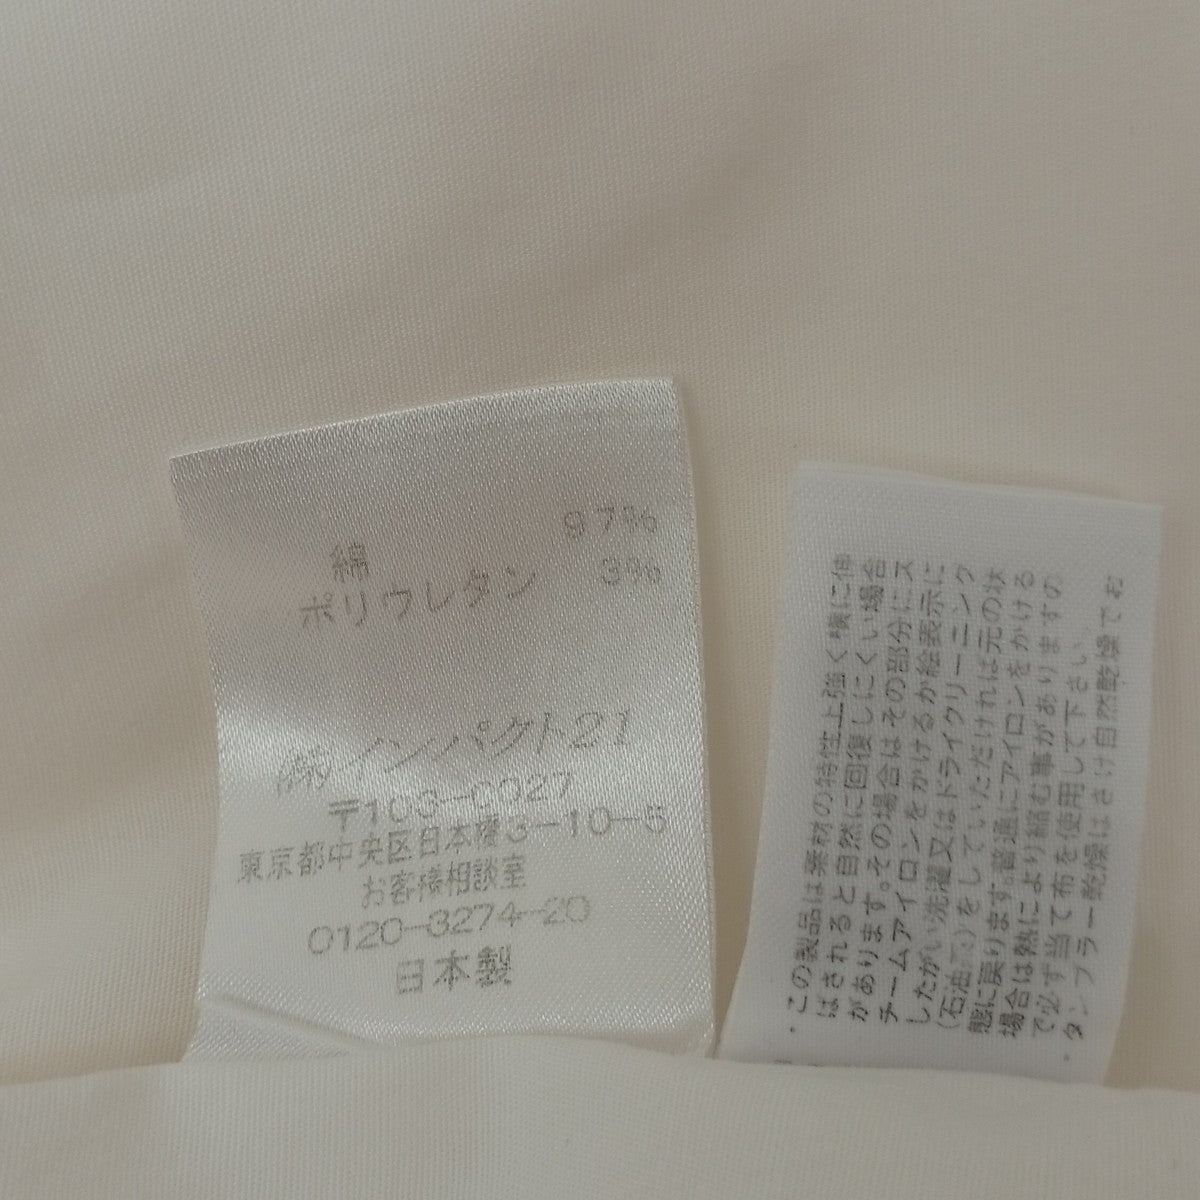 綿 97%
ポリウレタン 3%
㈱インパクト21
〒103-0027
東京都中央区日本橋3-10-5
お客様相談室
0120-3274-20
日本製
・この製品は素材の特性上強く横に伸
ばされると自然に回復しにくい場合
があります。その場合はその部分にス
チームアイロンをかけるか絵表示に
したがい洗濯又はドライクリーニング
(石油系)をしていただければ元の状
態に戻ります。普通にアイロンをかける
場合は熱により縮む事がありますの
で必ず当て布を使用して下さい。
・タンブラー乾燥はさけ自然乾燥でお